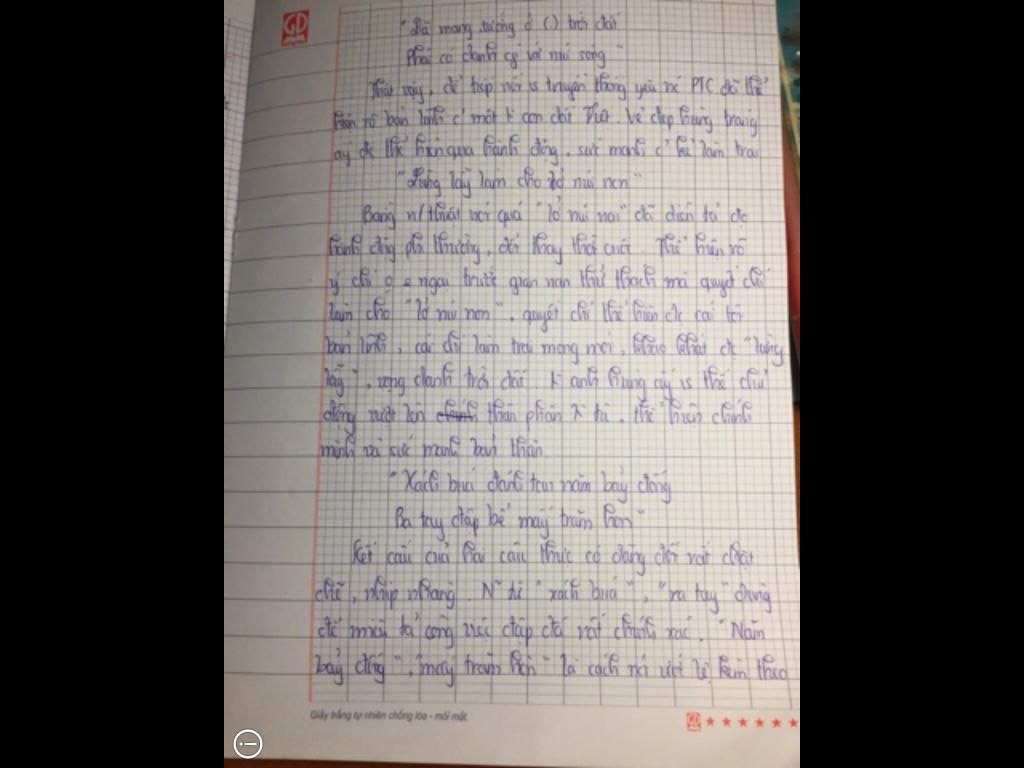 GD
"Đã mang tiếng ở (.) trời đất
Phải có danh gì với núi sông"
Thật vậy, để tiếp nối vs truyền thống yêu nc PTC đã thể
hiện rõ bản lĩnh c' một k con chí Vẻ đẹp hùng tráng
ấy đc thể hiện qua hành động, sức mạnh c' kẻ làm trai
"Lừng lẫy làm cho lở núi non"
Bằng n/ thuật nói quá "lở núi non" đã diễn tả đc
hành động phi thường, đổi thay thời cuộc. Thể hiện rõ
ý chí o e ngại trước gian nan thử thách mà quyết chí
làm cho "lở núi non", quyết chí thể hiện đc cái tôi
bản lĩnh, cái chí làm trai mong mỏi, khao khát đc "lừng
lẫy", vang danh trời đất. k anh hùng ấy vs thế chủ
động vượt lên thân phận tù, thể hiện chính
mình và sức mạnh bản thân.
"Xách búa đánh tan năm bảy đống
Ra tay đập bể mấy trăm hòn"
Kết cấu của hai câu thực có dùng đối rất chặt
chẽ, nhịp nhàng. N~ từ "xách búa", "ra tay" dùng
để miêu tả công việc đập đá rất chính xác. "Năm
bảy đống", "mấy trăm hòn" là cách nói ước lệ kèm theo
Giấy trắng tự nhiên chống lóa - mỏi mắt.